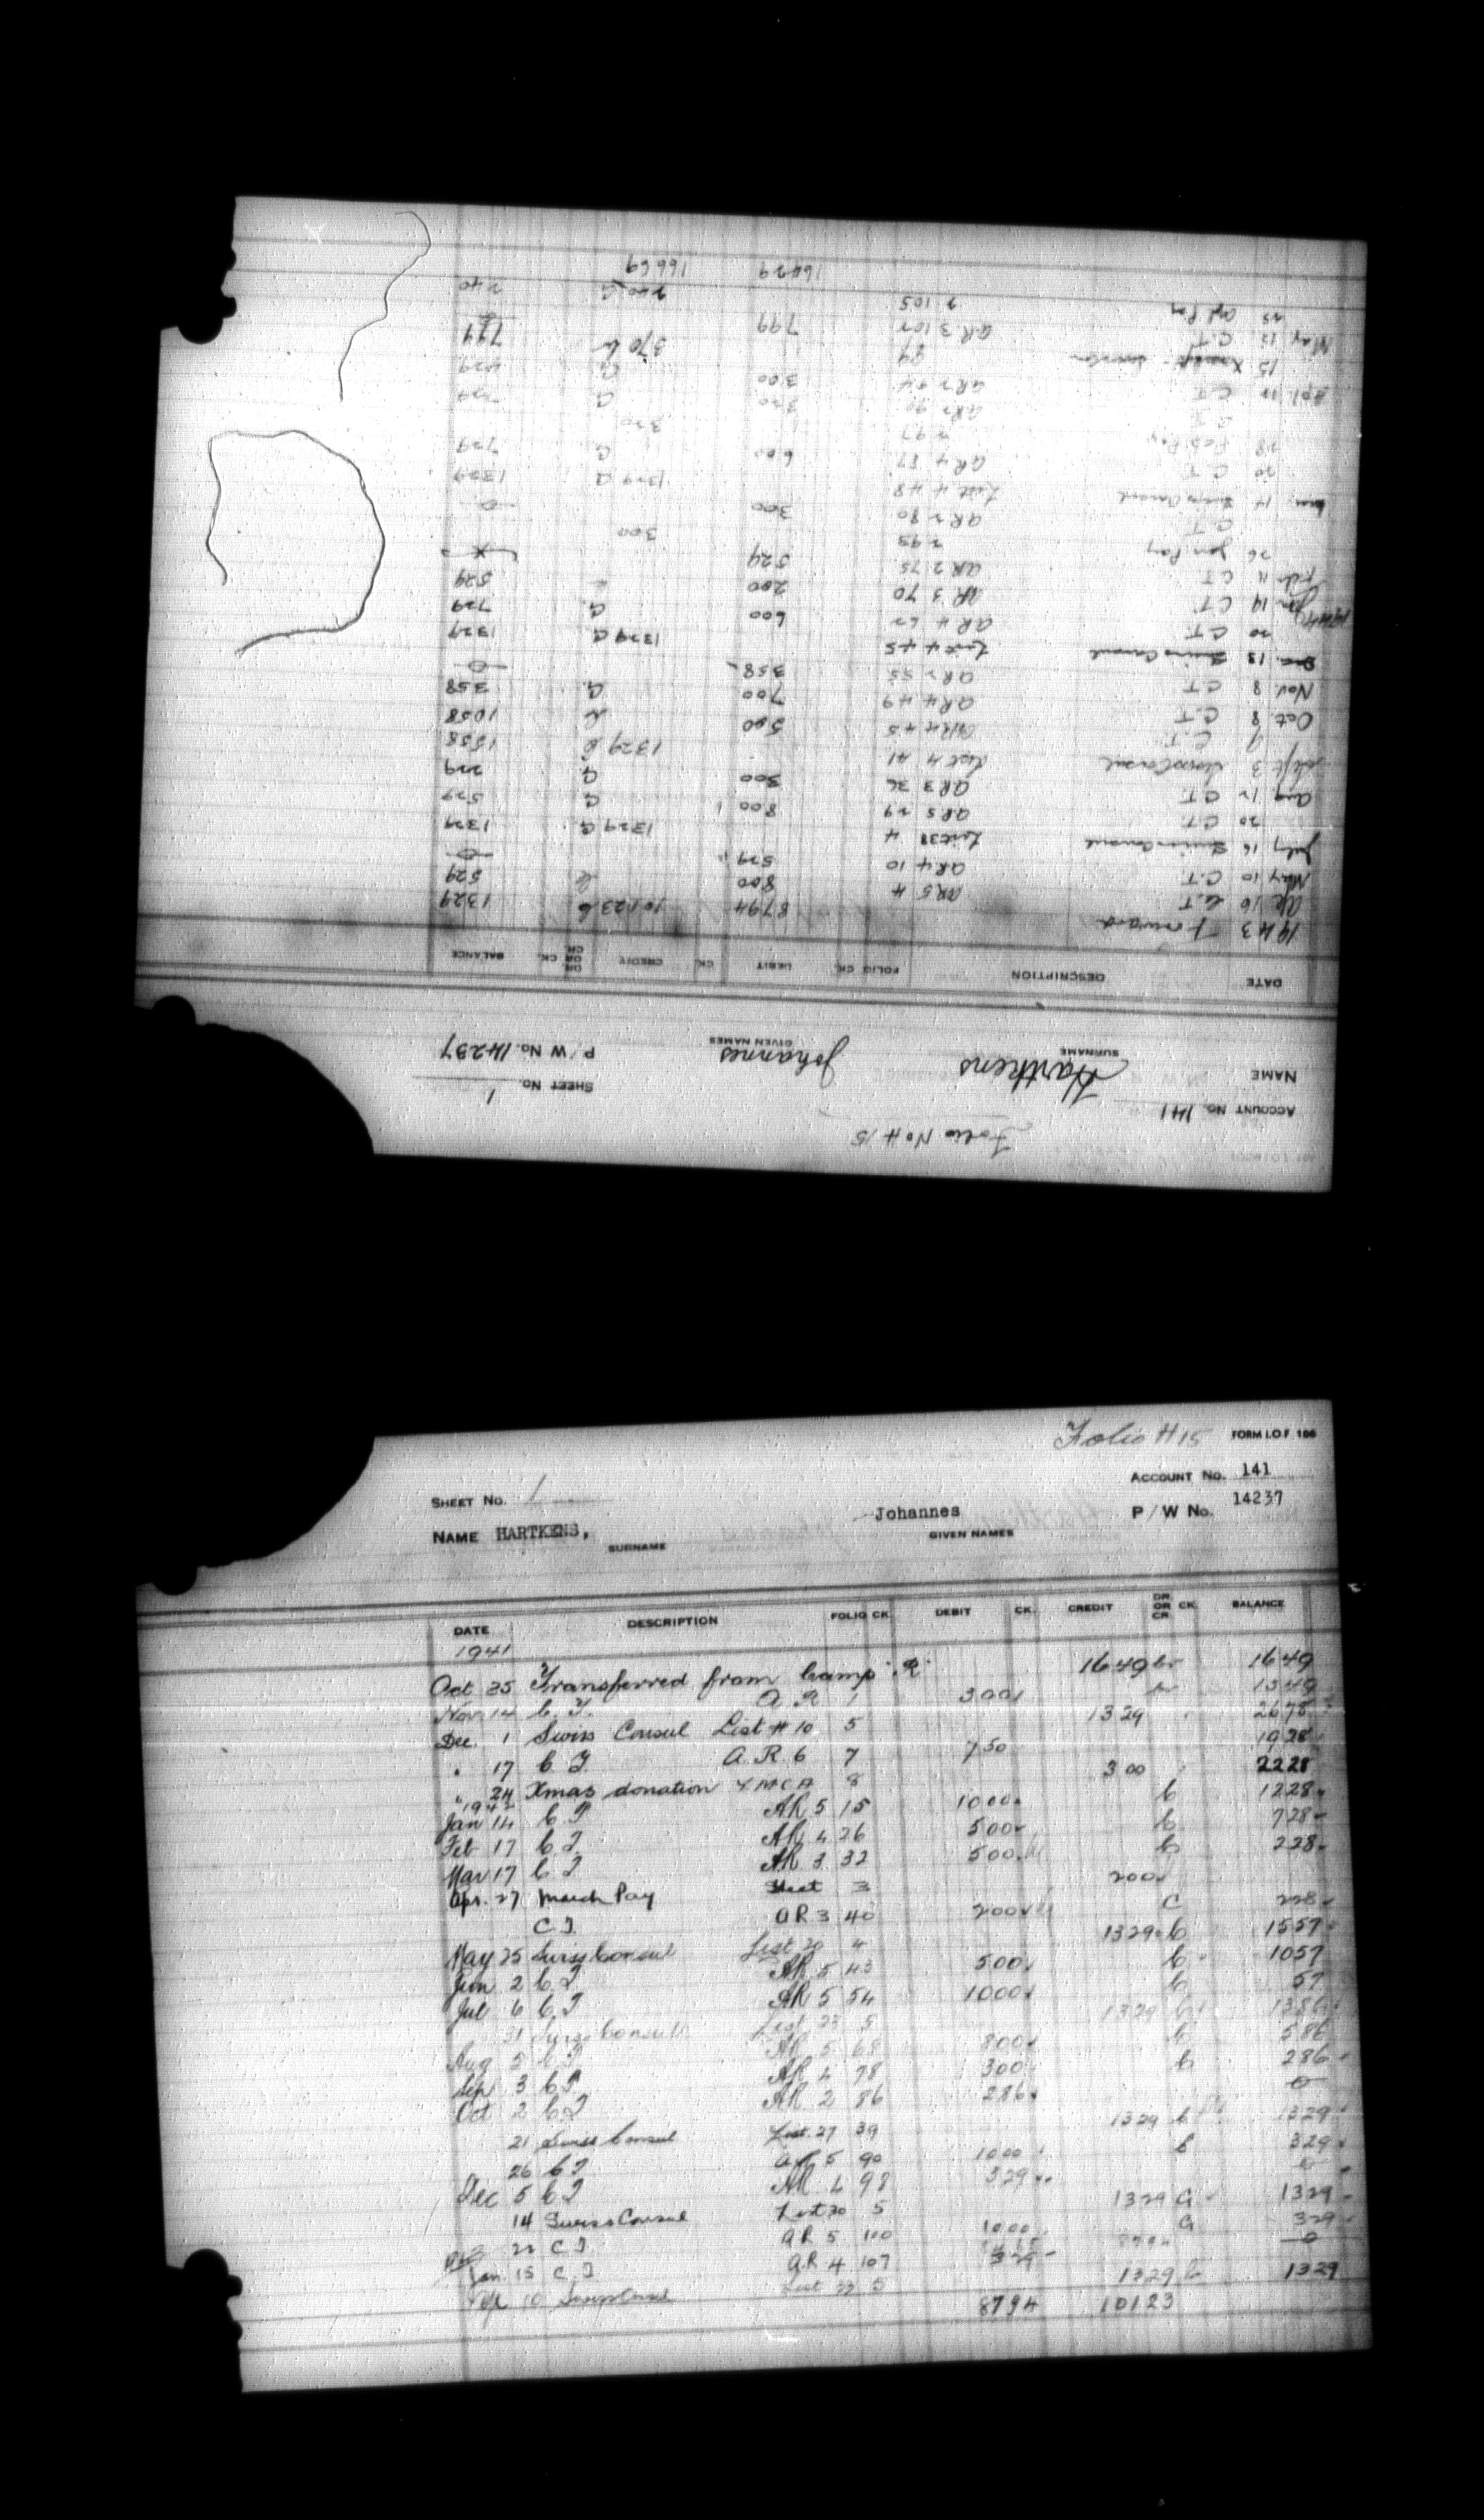 Folio No H 15
ACCOUNT No. 141 SHEET No. 1
NAME Hartkens Johannes P/W No. 14237
SURNAME GIVEN NAMES
DATE DESCRIPTION FOLIO CK. DEBIT CK. CREDIT DR. OR CR. CK. BALANCE
1943 Forward 8794 10123 C 1329
16 C.T. AR 5 4 800 529
May 10 C.T. AR 4 10 529 0
July 16 Swiss Consul List 38 4 1329 G 1329
20 C.T. AR 5 29 800 G 529
Aug 12 C.T. AR 3 36 300 G 229
Sept 3 Swiss Consul List 4 41 1329 1558
9 C.T. AR 4 45 500 1058
Oct 8 C.T. AR 4 49 700 G 358
Nov. 8 C.T. AR 2 55 358 0
Dec. 13 Swiss Consul List 4 45 1329 G 1329
20 C.T. AR 4 62 600 G 729
1944 Jan 19 C.T. AR 3 70 200 529
Feb 11 C.T. AR 2 75 529
26 Jan Pay 2 95 300
C.T. AR 2 80 300 0
14 Swiss Consul List 4 48 1329 G 1329
20 C.T. AR 4 87 600 G 729
28 Feb. Pay 2 97 320
C.T. AR 2 90 320 G 729
Apl 12 C.T. AR 2 94 300 G 429
15 99 370 799
May 12 C.T. AR 3 107 799
25 Apl Pay 2 105 240 G 240
16429 16669
Folio H 15 FORM I.O.F. 166
ACCOUNT No. 141
SHEET No. 1 P/W No. 14237
NAME HARTKENS, Johannes
SURNAME GIVEN NAMES
DATE DESCRIPTION FOLIO CK. DEBIT CK. CREDIT DR. OR CR. CK. BALANCE
1941
Oct 25 Transferred from Camp "R" 1649 Cr 1649
Nov. 14 C.T. A R 1 300 Cr 1349
Dec. 1 Swiss Consul List # 10 5 1329 2678
" 17 C.T. A.R. 6 7 750 1928
" 24 Xmas donation YMCA 8 300 2228
1942
Jan 14 C T AR 5 15 1000 C 1228
Feb 17 C T AR 4 26 500 C 728
Mar 17 C T AR 3 32 500 C 228
Apr. 27 March Pay Sheet 3 200
C T AR 3 40 200 C 228
May 25 Swiss Consul List 20 4 1329 C 1557
Jun 2 C T AR 5 43 500 C 1057
Jul 6 C T AR 5 54 1000 C 57
31 Swiss Consul List 23 5 1329 C 1386
Aug 5 C T AR 5 68 800 C 586
Sep 3 C T AR 4 78 300 C 286
Oct 2 C T AR 2 86 286 0
21 Swiss Consul List 27 39 1329 C 1329
26 C T AR 5 90 1000 C 329
Dec 5 C T AR 4 98 329 0
14 Swiss Consul List 30 5 1329 G 1329
22 C T AR 5 100 1000 G 329
Jan. 15 C T AR 4 107 329 0
10 Swiss Consul List 33 5 1329 C 1329
8794 10123